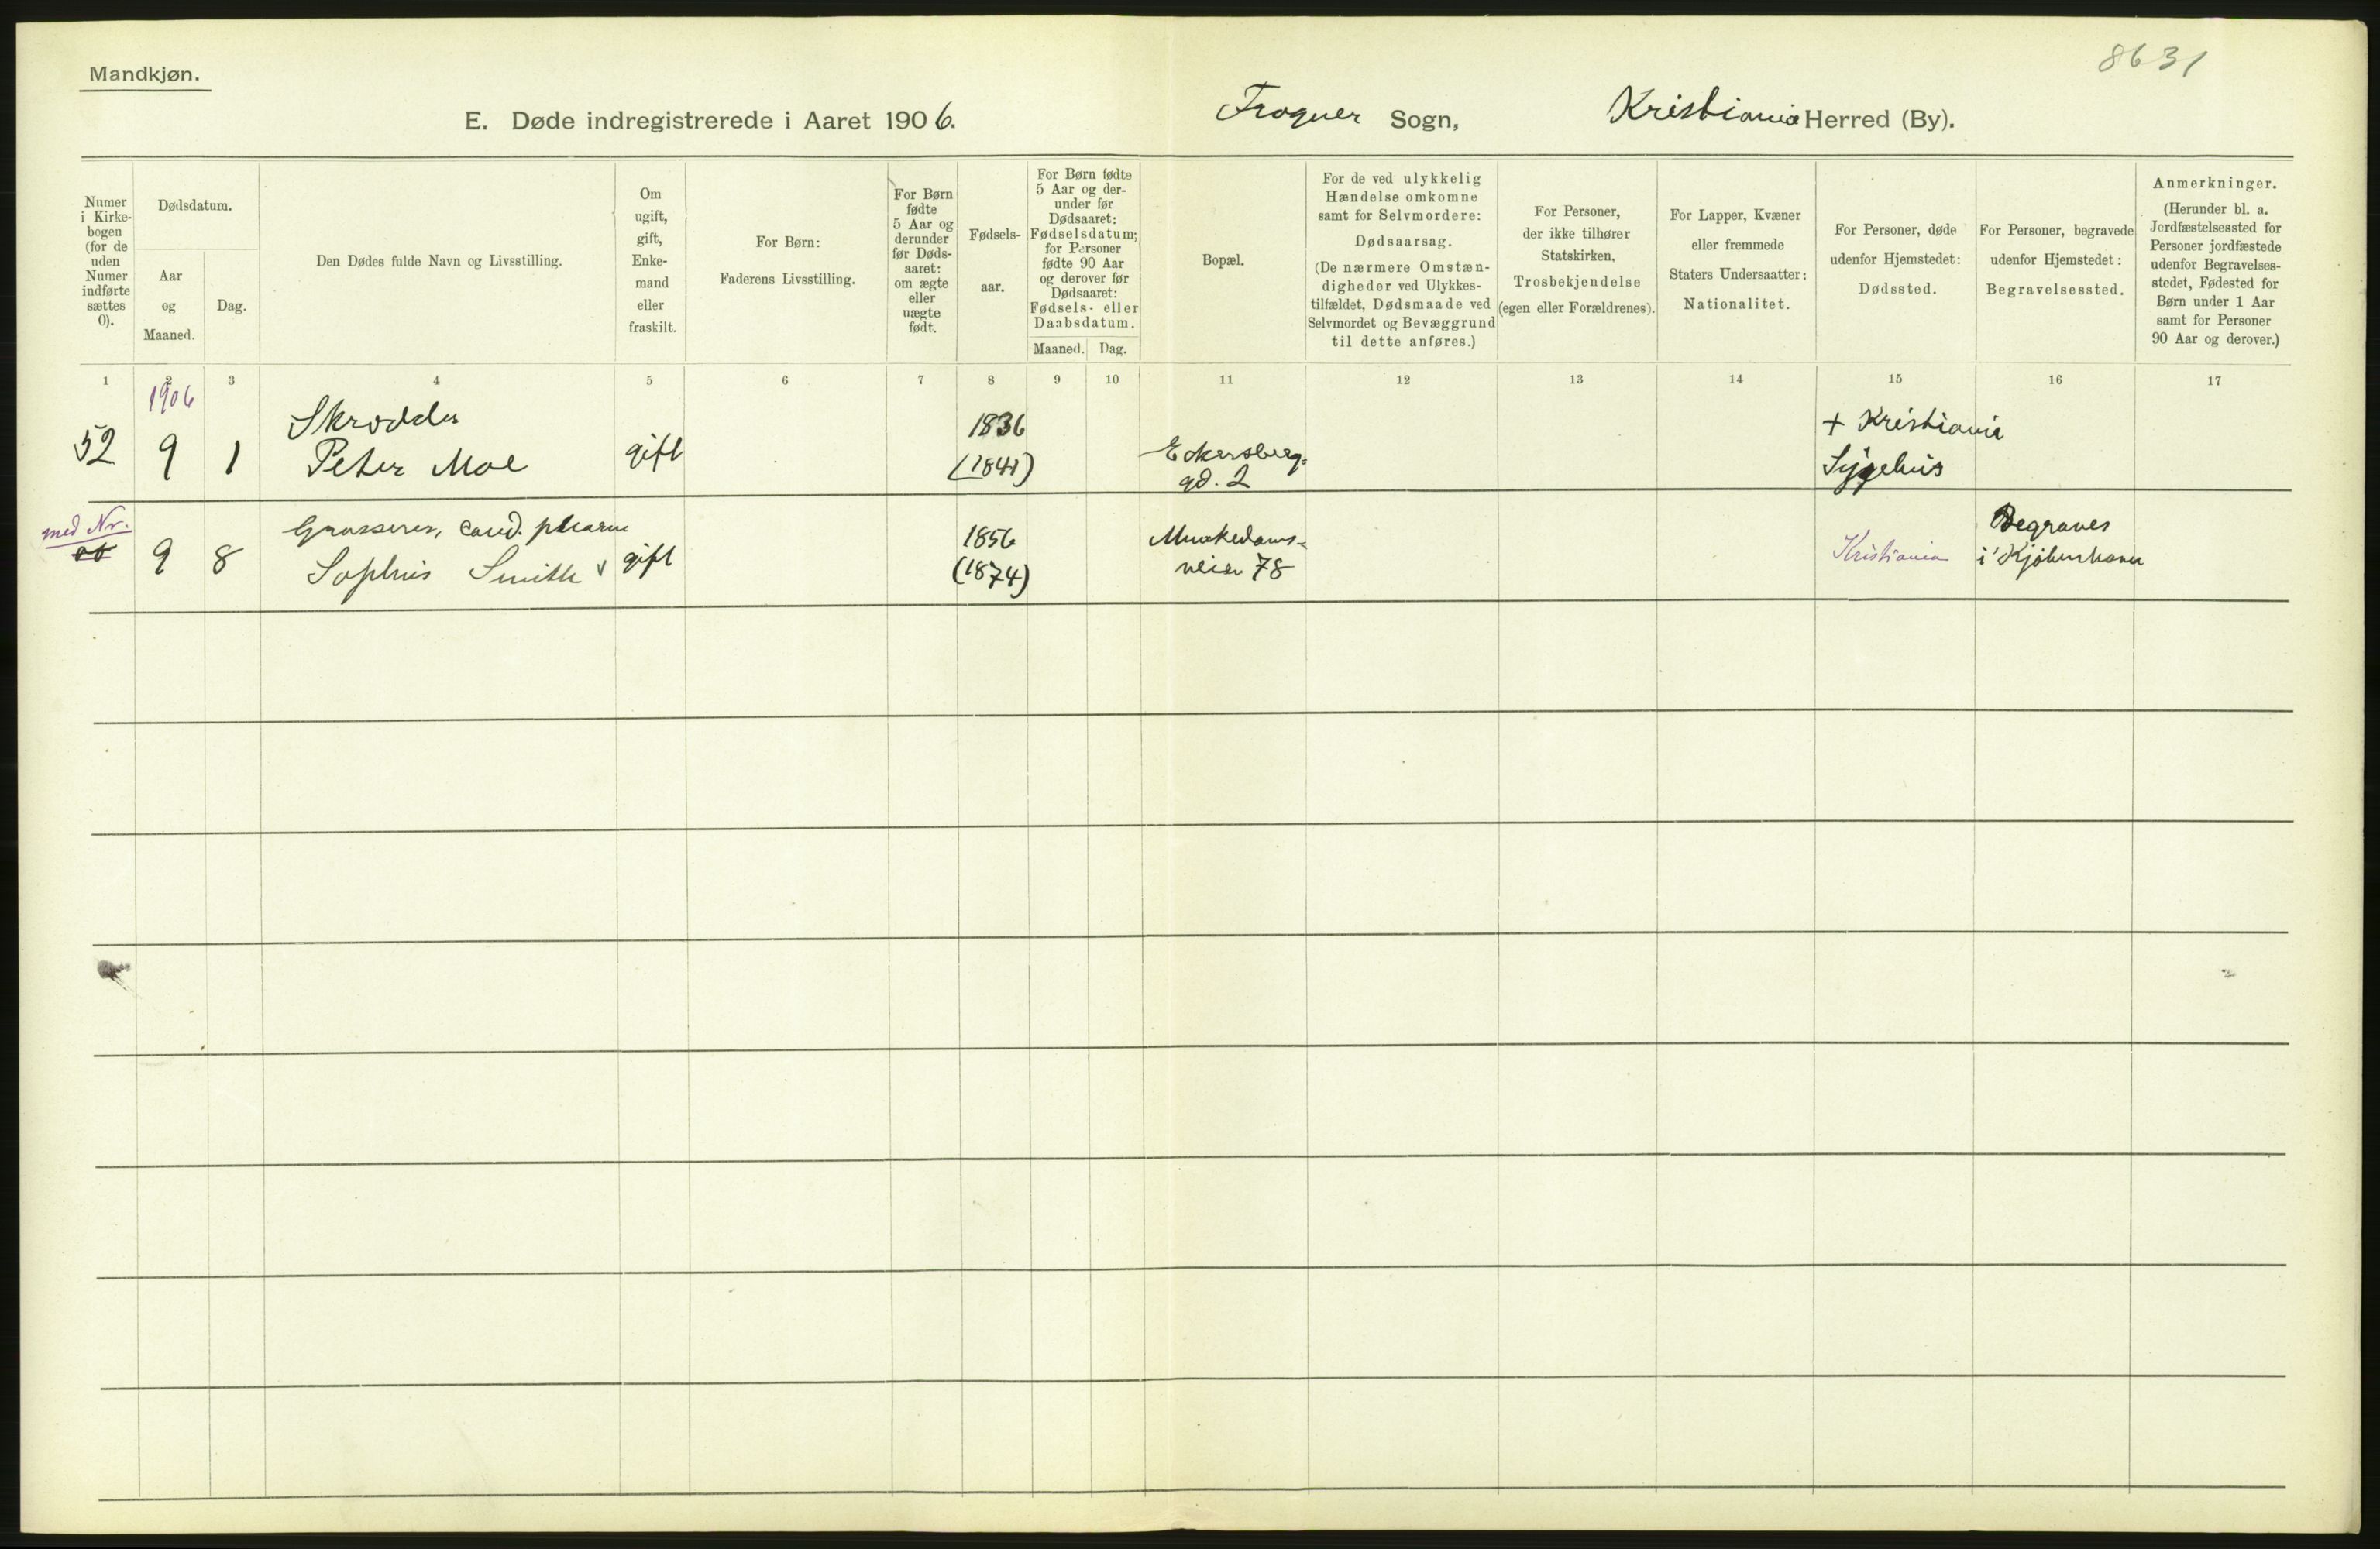 8631
Mandkjøn.
E. Døde indregistrerede i Aaret 1906. Frogner Sogn, Kristiania Herred (By).
Numer i Kirkebogen (for de uden Numer indførte sættes 0).
Dødsdatum.
Aar og Maaned.
Dag.
Den Dødes fulde Navn og Livsstilling.
Om ugift, gift, Enkemand eller fraskilt.
For Børn:
Faderens Livsstilling.
For Børn fødte 5 Aar og derunder før Dødsaaret: om ægte eller uægte født.
Fødselsaar.
For Børn fødte 5 Aar og derunder før Dødsaaret: Fødselsdatum; for Personer fødte 90 Aar og derover før Dødsaaret: Fødsels- eller Daabsdatum.
Maaned. Dag.
Bopæl.
For de ved ulykkelig Hændelse omkomne samt for Selvmordere:
Dødsaarsag.
(De nærmere Omstændigheder ved Ulykkestilfældet, Dødsmaade ved Selvmordet og Bevæggrund til dette anføres.)
For Personer, der ikke tilhører Statskirken,
Trosbekjendelse
(egen eller Forældrenes).
For Lapper, Kvæner eller fremmede Staters Undersaatter:
Nationalitet.
For Personer, døde udenfor Hjemstedet:
Dødssted.
For Personer, begravede udenfor Hjemstedet:
Begravelsessted.
Anmerkninger.
(Herunder bl. a. Jordfæstelsessted for Personer jordfæstede udenfor Begravelsesstedet, Fødested for Børn under 1 Aar samt for Personer 90 Aar og derover.)
1 2 3 4 5 6 7 8 9 10 11 12 13 14 15 16 17
1906
52 9 1 Skrædder
Peter Moe gift 1836
(1841) Eckersberg=
gd. 2 + Kristiania
Sygehus
med Nr.
9 8 Grosserer, cand. pharm
Sophus Smith gift 1856
(1874) Munkedams=
veien 78 Kristiania Begraves
i Kjøbenhavn